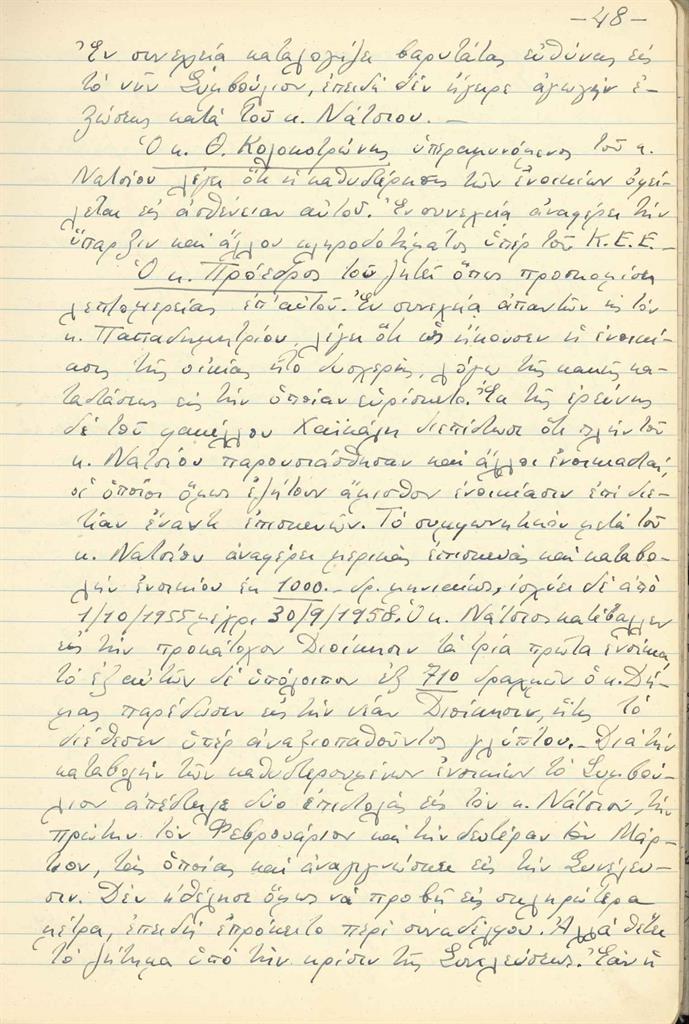 -48-
Ἐν συνεχείᾳ καταλογίζει βαρυτάτας εὐθύνας εἰς
τὸ νῦν Συμβούλιον, ἐπειδὴ δὲν ἤγειρε ἀγωγὴν ἐ-
ξώσεως κατὰ τοῦ κ. Νάτσιου. -
Ὁ κ. Θ. Κολοκοτρώνης ὑπεραμυνόμενος τοῦ κ.
Νατσίου λέγει ὅτι ἡ καθυστέρησις τῶν ἐνοικίων ὀφεί-
λεται εἰς ἀσθένειαν αὐτοῦ. Ἐν συνεχείᾳ ἀναφέρει τὴν
ὕπαρξιν καὶ ἄλλου κληροδοτήματος ὑπὲρ τοῦ Κ.Ε.Ε.-
Ὁ κ. Πρόεδρος τοῦ ζητεῖ ὅπως προσκομίσῃ
λεπτομερείας ἐπ' αὐτοῦ. Ἐν συνεχείᾳ ἀπαντῶν εἰς τὸν
κ. Παπαδημητρίου, λέγει ὅτι ὡς ἤκουσεν ἡ ἐνοικί-
ασις τῆς οἰκίας ἦτο δυσχερής, λόγῳ τῆς κακῆς κα-
ταστάσεως εἰς τὴν ὁποίαν εὑρίσκετο. Ἐκ τῆς ἐρεύνης
δὲ τοῦ φακέλλου Χαϊκάλη διεπίστωσε ὅτι πλὴν τοῦ
κ. Νατσίου παρουσιάσθησαν καὶ ἄλλοι ἐνοικιασταί,
οἱ ὁποῖοι ὅμως ἐζήτουν ἄμισθον ἐνοικίασιν ἐπὶ διε-
τίαν ἔναντι ἐπισκευῶν. Τὸ συμφωνητικὸν μετὰ τοῦ
κ. Νατσίου ἀναφέρει μερικὰς ἐπισκευὰς καὶ καταβο-
λὴν ἐνοικίου ἐκ 1000.- δρ. μηνιαίως, ἰσχύει δὲ ἀπὸ
1/10/1955 μέχρι 30/9/1958. Ὁ κ. Νάτσιος κατέβαλλεν
εἰς τὴν προκάτοχον Διοίκησιν τὰ τρία πρῶτα ἐνοίκια,
τὸ ἐξ αὐτῶν δὲ ὑπόλοιπον ἐξ 710 δραχμῶν ὁ κ. Δή-
μας παρέδωσεν εἰς τὴν νέαν Διοίκησιν, ἥτις τὸ
διέθεσεν ὑπὲρ ἀναξιοπαθοῦντος γλύπτου. - Διὰ τὴν
καταβολὴν τῶν καθυστερουμένων ἐνοικίων τὸ Συμβού-
λιον ἀπέστειλε δύο ἐπιστολὰς εἰς τὸν κ. Νάτσιου, τὴν
πρώτην τὸν Φεβρουάριον καὶ τὴν δευτέραν τὸν Μάρ-
τιον, τὰς ὁποίας καὶ ἀναγιγνώσκει εἰς τὴν Συνέλευ-
σιν. Δὲν ἠθέλησε ὅμως νὰ προβῇ εἰς σκληρώτερα
μέτρα, ἐπειδὴ ἐπρόκειτο περὶ συναδέλφου. Ἀλλὰ θέτει
τὸ ζήτημα ὑπὸ τὴν κρίσιν τῆς Συνελεύσεως. Ἐὰν ἡ